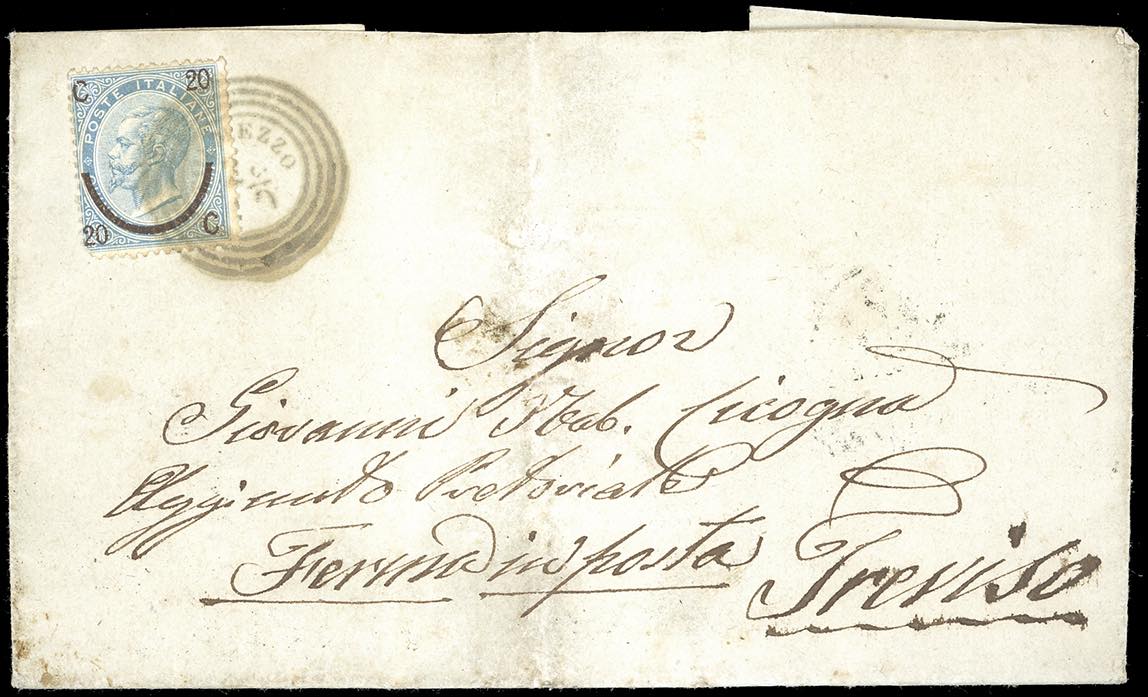 C 20
POSTE ITALIANE
20 C
EZZO
Signor
Giovanni Nob. Cicogna
Aggiunto Pretoriale
Ferma in posta
Treviso